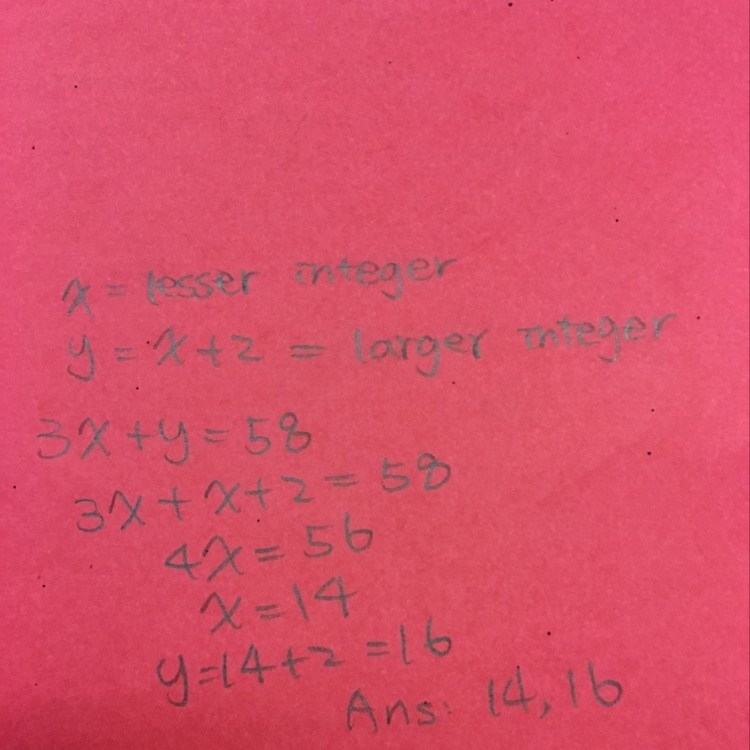 x = lesser integer
y = x+2 = larger integer
3x+y=58
3x+x+2=58
4x=56
x=14
y=14+2=16
Ans: 14,16